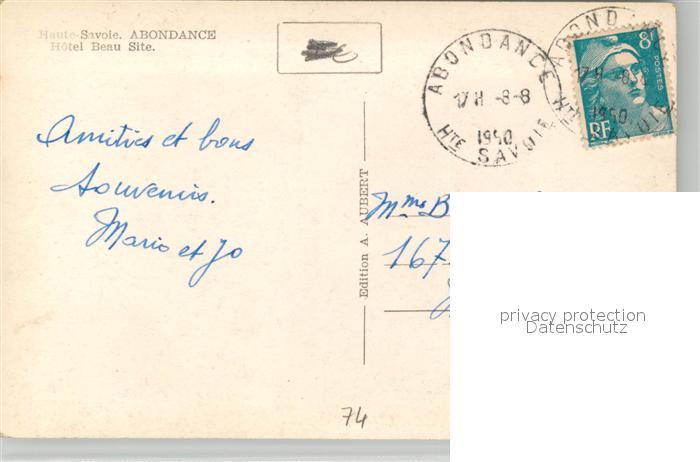 Haute-Savoie. ABONDANCE
Hôtel Beau Site.
ABONDANCE
17H -8-8
1950
HTE SAVOIE
ABONDANCE
17H -8-8
1950
HTE SAVOIE
8F
POSTES
RF
Amitiés et bons
souvenirs.
Mario et Jo
Edition A. AUBERT
Mme B
167
privacy protection
Datenschutz
74